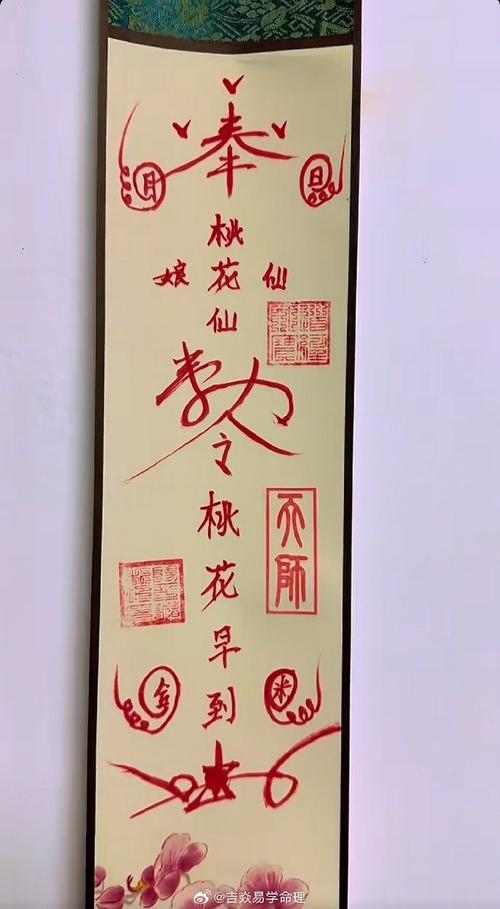 奉
月 日
桃
娘 花 仙
仙
敕令
桃
花
早
到
天師
金 米
@吉焱易学命理